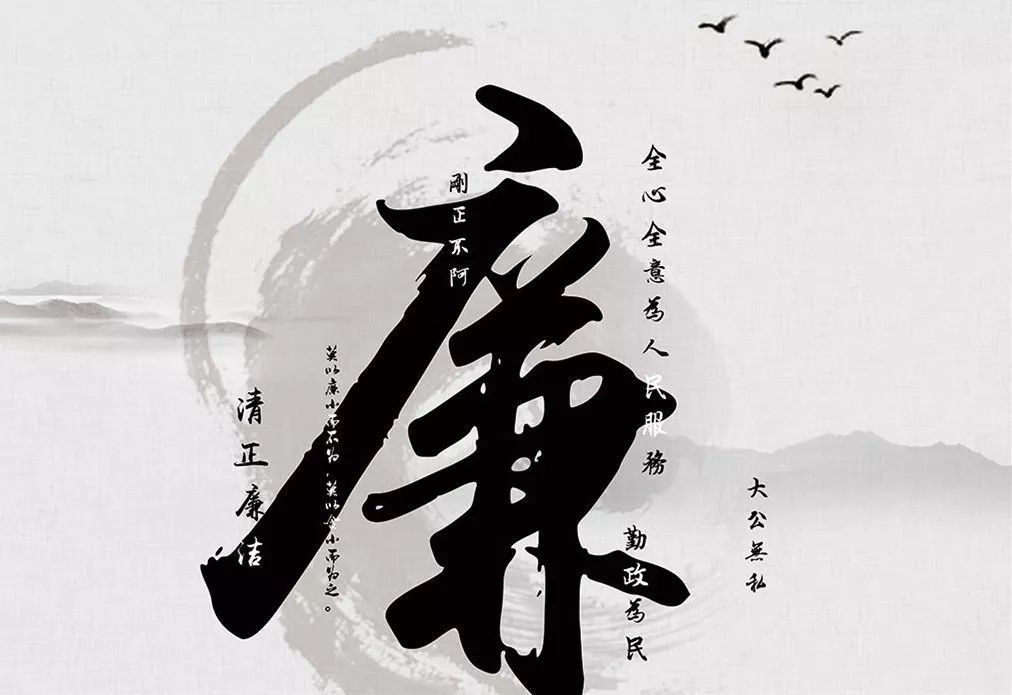 廉
剛正不阿
全心全意為人民服務
清正廉洁
莫以廉小而不为,莫以贪小而为之。
勤政為民
大公無私